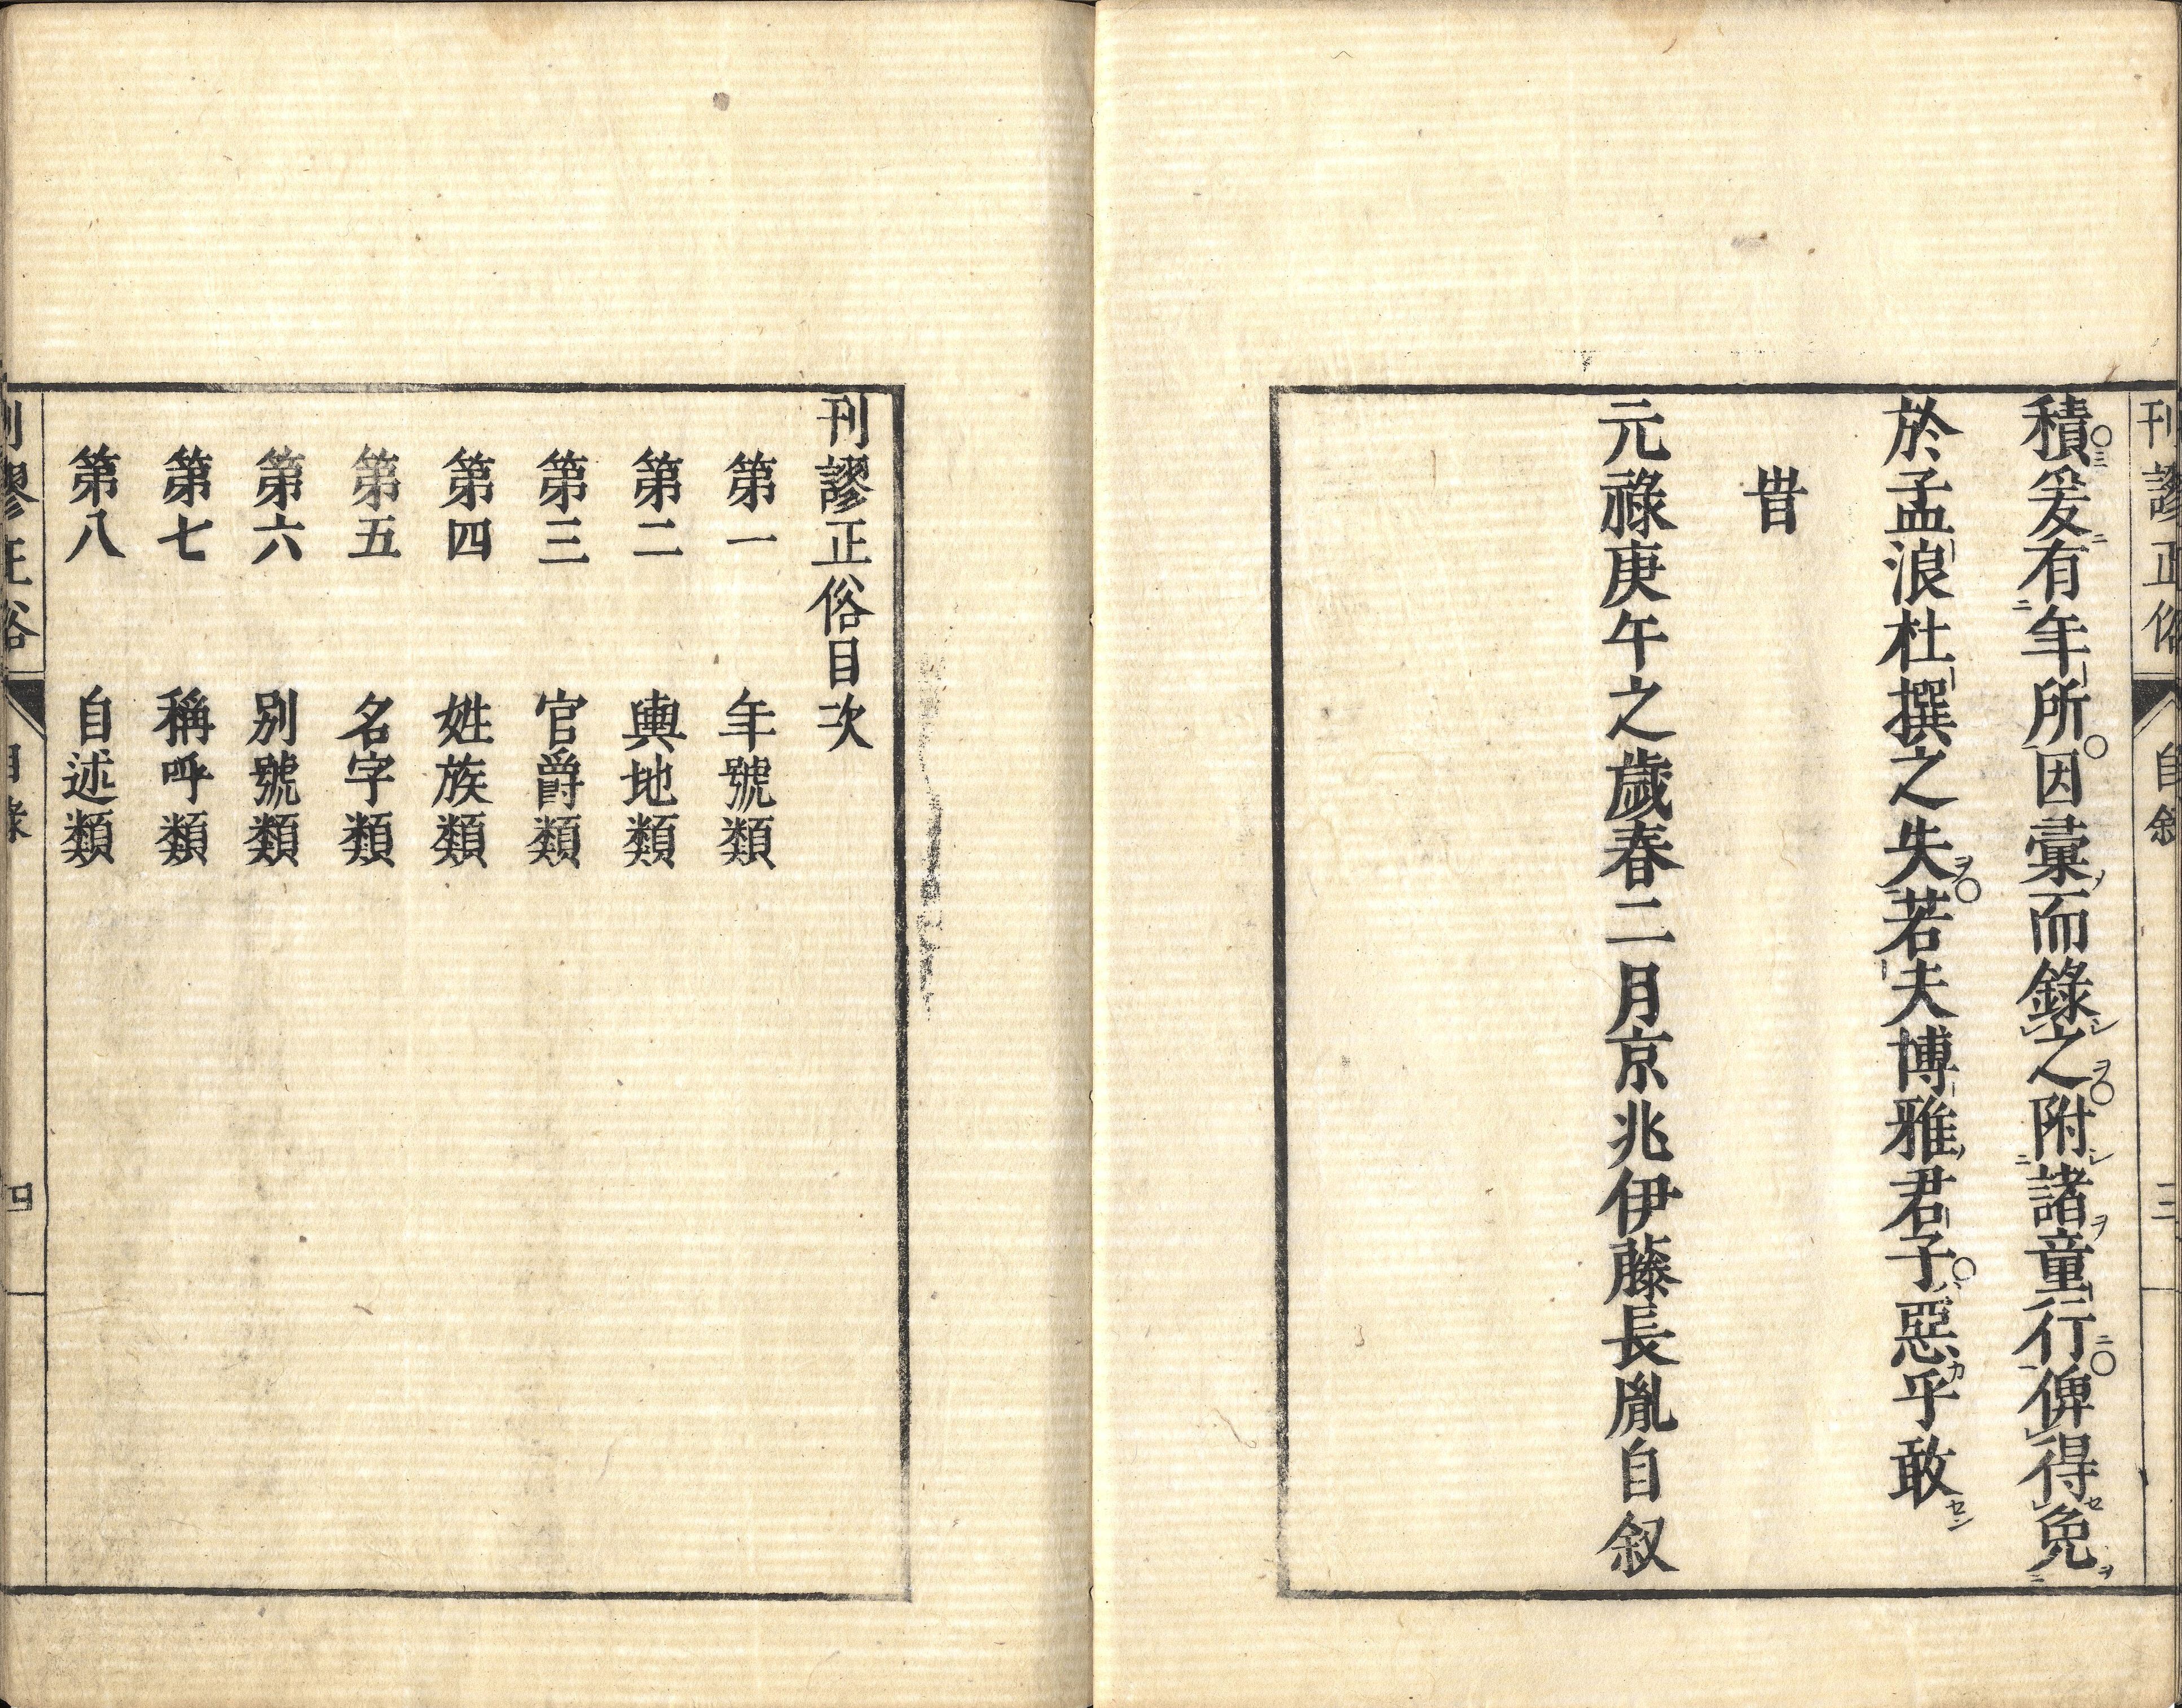 刊謬正俗 自敘 三
積爰有年所因彙而錄之附諸童行俾得免
於孟浪杜撰之失若夫博雅君子惡乎敢
旹
元祿庚午之歲春二月京兆伊藤長胤自叙
刊謬正俗目次
第一 年號類
第二 輿地類
第三 官爵類
第四 姓族類
第五 名字類
第六 別號類
第七 稱呼類
第八 自述類
刊謬正俗 目錄 四